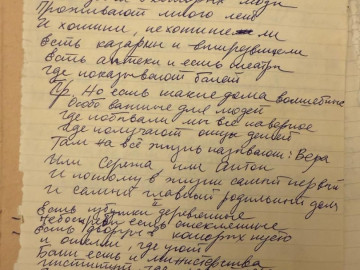 Проживают много лет
Есть казармы и
Есть аптеки и есть театры
Где показывают балет
Пр. Но есть такие дома волшебные
Особо важные для людей
Где побывали мы все наверное
Где получают отцы детей
Там на всю жизнь называют: Вера
Или Сережа или Антон
И потому в жизни самый первый
И самый главный родильный дом
II
Есть избушки деревянные
Небоскребы есть стеклянные
Есть дворцы в которых пусто
и отели, где уют
Бани есть и Министерства